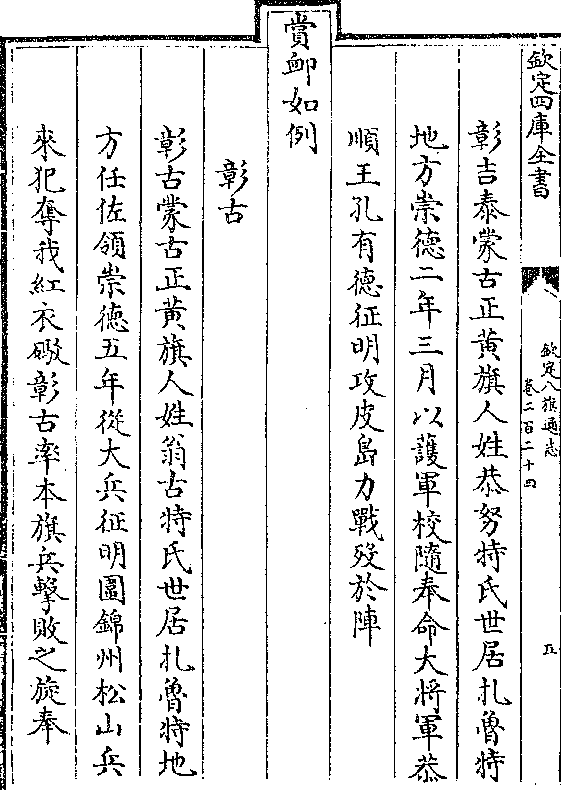 欽定四庫全書
欽定八旗通志
卷二百二十四
五
彰吉泰蒙古正黃旗人姓恭努特氏世居扎魯特
地方崇德二年三月以護軍校隨奉命大將軍恭
順王孔有德征明攻皮島力戰歿於陣
賞䘏如例
彰古
彰古蒙古正黃旗人姓翁古特氏世居扎魯特地
方任佐領崇德五年從大兵征明圍錦州松山兵
來犯奪我紅衣礮彰古率本旗兵擊敗之旋奉